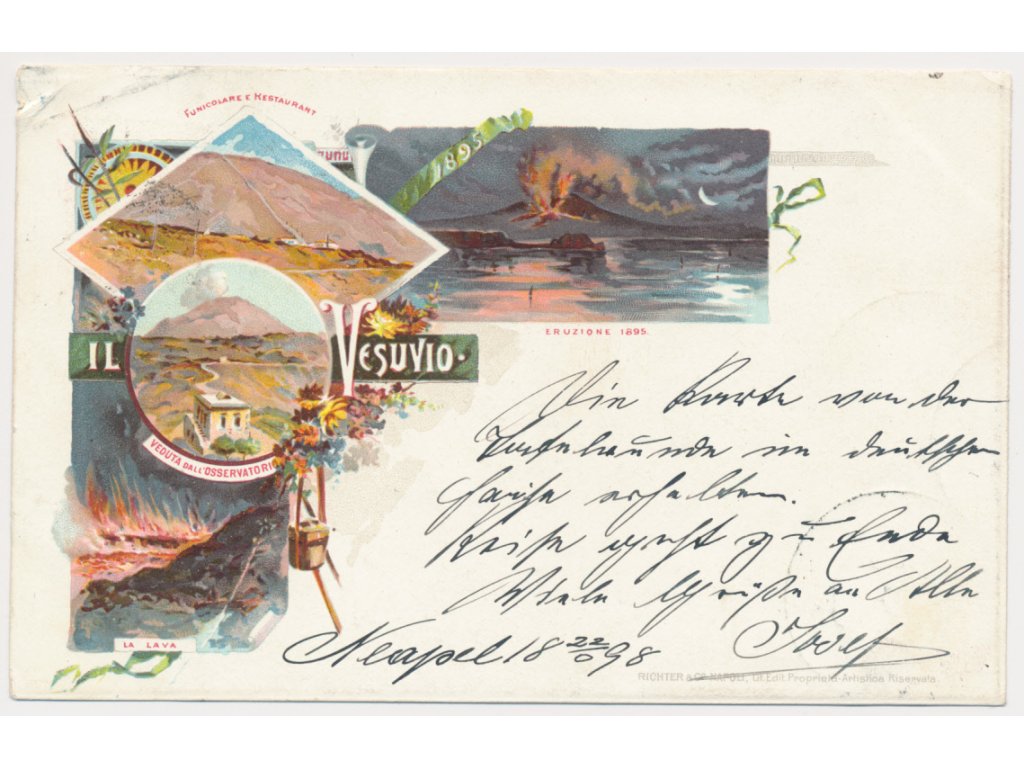 FUNICOLARE E RESTAURANT
1895
ERUZIONE 1895.
IL VESUVIO.
VEDUTA DALL'OSSERVATORIO
LA LAVA
Die Karte von der
Tafelrunde im deutschen
Hause erhalten.
Reise geht zu Ende
Viele Grüße an Alle
Neapel 18 22/5 98 Josef
RICHTER & Co NAPOLI, Lit. Edit. Proprietà-Artistica Riservata